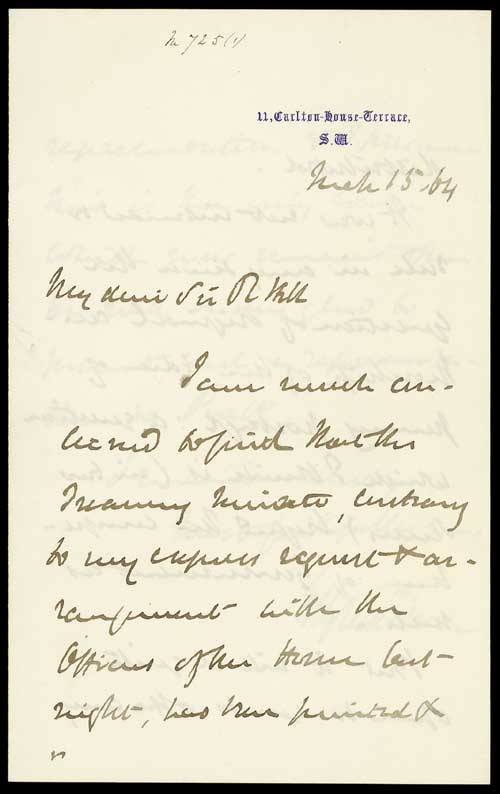 M 725(1)
11, Carlton-House-Terrace,
S.W.
Mch 15. 64
My dear Sir R Hill
I am much con-
cerned to find that the
Treasury Minute, contrary
to my express request & ar-
rangement with the
Officers of the House last
night, has been printed &